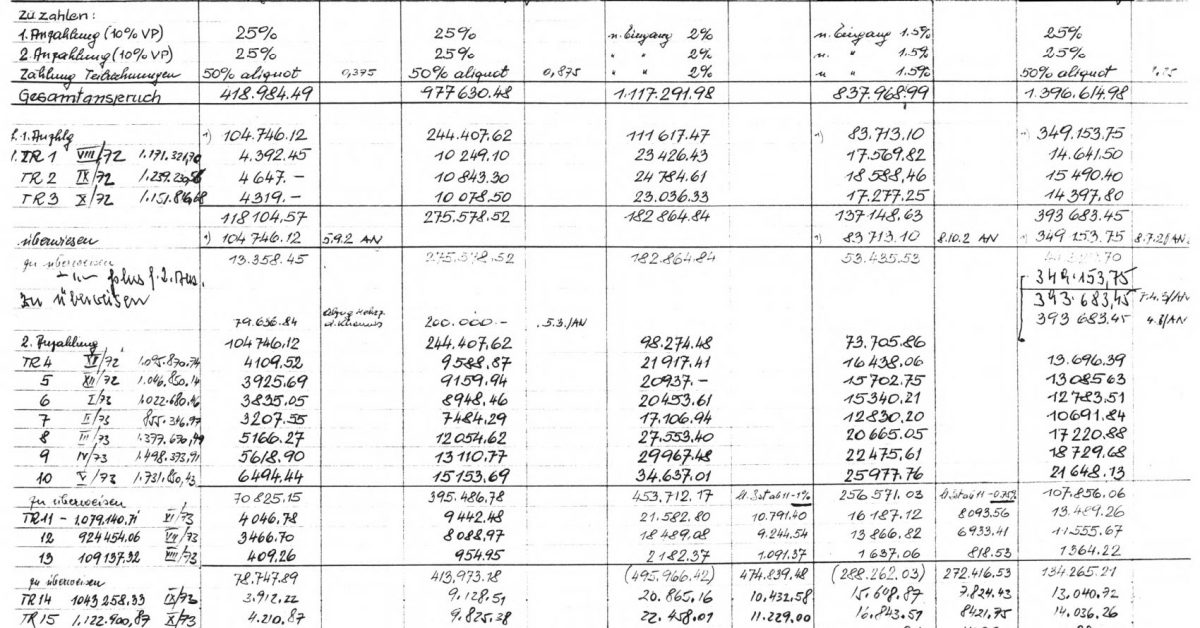 zu zahlen:
1. Anzahlung (10% VP) 25% 25% n. Eingang 2% n. Eingang 1.5% 25%
2. Anzahlung (10% VP) 25% 25% " " 2% n. " 1.5% 25%
Zahlung Teilrechnungen 50% aliquot 0,375 50% aliquot 0,875 " " 2% " " 1.5% 50% aliquot 1.25
Gesamtanspruch 418.984.49 977630.48 1.117.291.98 837.968.99 1.396.614.98
1. Anzhlg 1) 104.746.12 244.407.62 111617.47 1) 83.713.10 1) 349.153.75
TR 1 VIII/72 1.171.321,70 4.392.45 10249.10 23426.43 17.569.82 14.641.50
TR 2 IX/72 4647.- 10843.30 24784.61 18588.46 15490.40
TR 3 X/72 4319.- 10078.50 23.036.33 17.277.25 14397.80
118104,57 275.578.52 182864.84 137148.63 393683.45
überwiesen 1) 104746.12 5.9.2 AN 1) 83713.10 8.10.2 AN 1) 349153.75
zu überweisen 13.358.45 275.578.52 182.864.84 53.435.53
349.153,75
zu überweisen 343.683,45
79.636.84 200.000.- 5.3./AN 393683.45
2. Anzahlung 104746,12 244.407,62 98.274.48 73.705.86
TR 4 XI/72 1.095.870,74 4109.52 9588.87 21917.41 16438.06 13.696.39
5 XII/72 1.046.850,14 3925.69 9159.94 20937.- 15702.75 1308563
6 I/73 1.022.680,46 3835.05 8948.46 20453.61 15340.21 12783.51
7 II/73 855.346,97 3207.55 7484.29 17.106.94 12830.20 10691.84
8 III/73 5166.27 12054.62 27.553.40 20665.05 17220.88
9 IV/73 1.498.373,91 5618.90 13110.77 29967.48 22475.61 18729.68
10 V/73 6494.44 15153.69 34.637.01 25977.76 21648.13
zu überweisen 70825.15 395.486.78 453.712.17 256571.03 107.856.06
TR 11 - 1.079.140.71 4046.78 9442.48 21.582.80 10.791.40 16187.12 8093.56 13.489.26
12 924454.06 3466.70 8088.97 18489.08 9.244.54 13866.82 6933.41 11.555.67
13 109137.32 VIII/73 409.26 954.95 2182.37 1.091.37 1637.06 818.53 1364.22
zu überweisen 78.747.89 413,973.18 (495.966.42) 474.839.48 (288.262.03) 272.416.53 134265.21
TR 14 1043258.33 IX/73 3.912,22 9.128.51 20.865.16 10.432.58 15.648.87 7.824.43 13.040.72
TR 15 1.122.900,87 X/73 4.210,87 9.825.38 22.458.01 11.229.00 16.843.51 8421,75 14.036.26